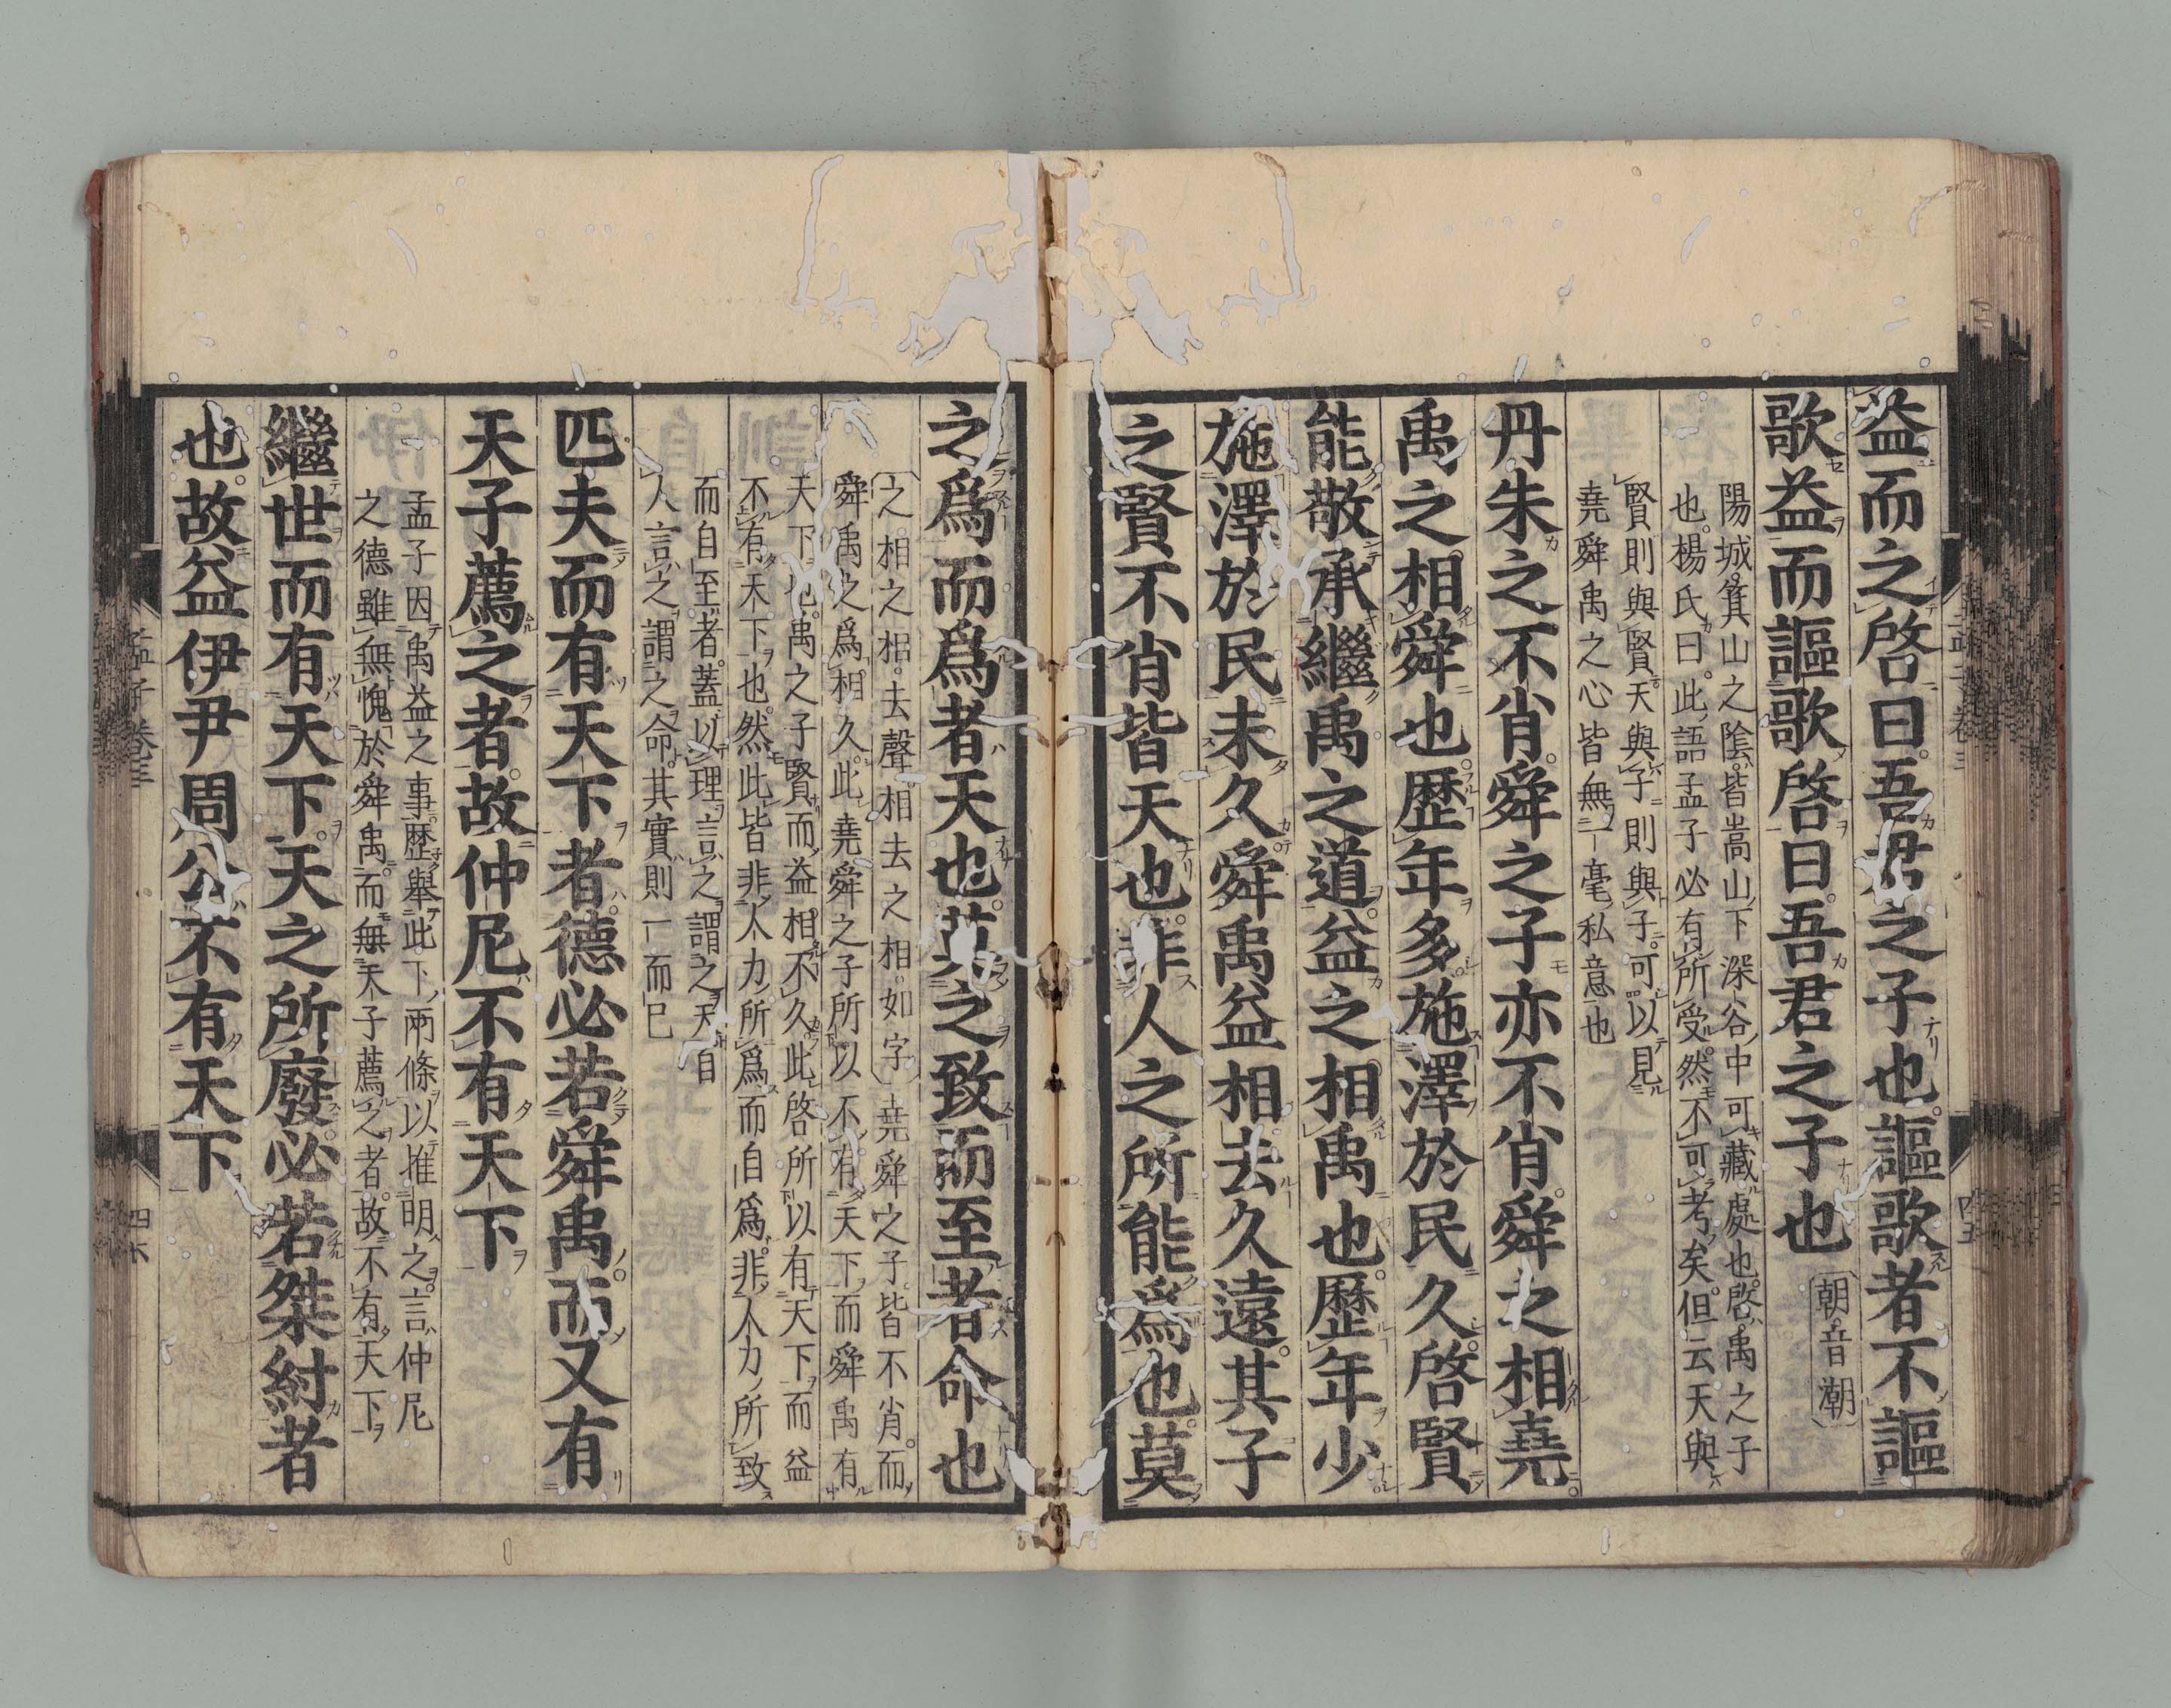 益而之啓曰吾君之子也謳歌者不謳
歌益而謳歌啓曰吾君之子也 朝音潮
陽城箕山之陰皆嵩山下深谷中可藏處也啓禹之子
也楊氏曰此語孟子必有所受然不可考矣但云天與
賢則與賢天與子則與子可以見
堯舜禹之心皆無一毫私意也
丹朱之不肖舜之子亦不肖舜之相堯
禹之相舜也歷年多施澤於民久啓賢
能敬承繼禹之道益之相禹也歷年少
施澤於民未久舜禹益相去久遠其子
之賢不肖皆天也非人之所能爲也莫
之爲而爲者天也莫之致而至者命也
之相之相去聲相去之相如字 堯舜之子皆不肖而
舜禹之爲相久此堯舜之子所以不有天下而舜禹有
天下也禹之子賢而益相不久此啓所以有天下而益
不有天下也然此皆非人力所爲而自爲非人力所致
而自至者蓋以理言之謂之天自
人言之謂之命其實則一而已
匹夫而有天下者德必若舜禹而又有
天子薦之者故仲尼不有天下
孟子因禹益之事歷舉此下兩條以推明之言仲尼
之德雖無愧於舜禹而無天子薦之者故不有天下
繼世而有天下天之所廢必若桀紂者
也故益伊尹周公不有天下
孟子 卷三
四六